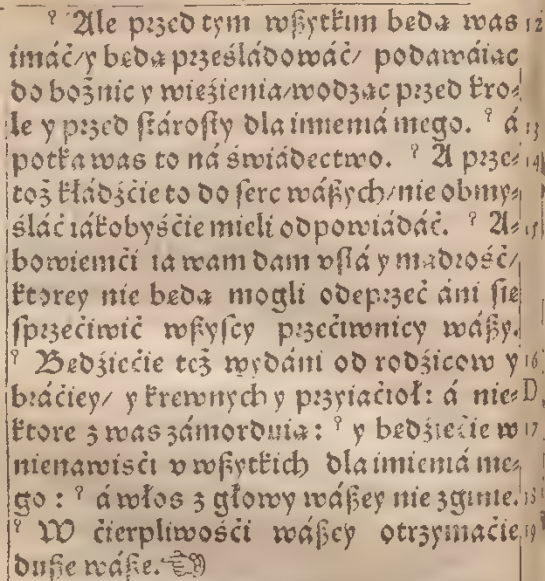 Ale przed tym wßytkim beda was 12
imáć/ y beda prześládowáć/ podawáiac
do bożnic y wiezienia/ wodzac przed kro-
le y przed stárosty dla imieniá mego. á 13
potka was to ná świádectwo. A prze- 14
toż kłádźcie to do serc wászych/ nie obmy-
śláć iákobyście mieli odpowiádáć. A- 15
bowiemći ia wam dam vstá y madrość/
ktorey nie beda mogli odeprzeć áni sie
sprzećiwić wßyscy przećiwnicy wáßy.
Bedźiećie też wydáni od rodźicow y 16
bráćiey/ y krewnych y przyiaćioł: á nie- D
ktore z was zámorduia: y bedźiećie w 17
nienawiśći v wßytkich dla imieniá me-
go: á włos z głowy wáßey nie zginie. 18
W ćierpliwośći wáßey otrzymaćie 19
duße wáße.